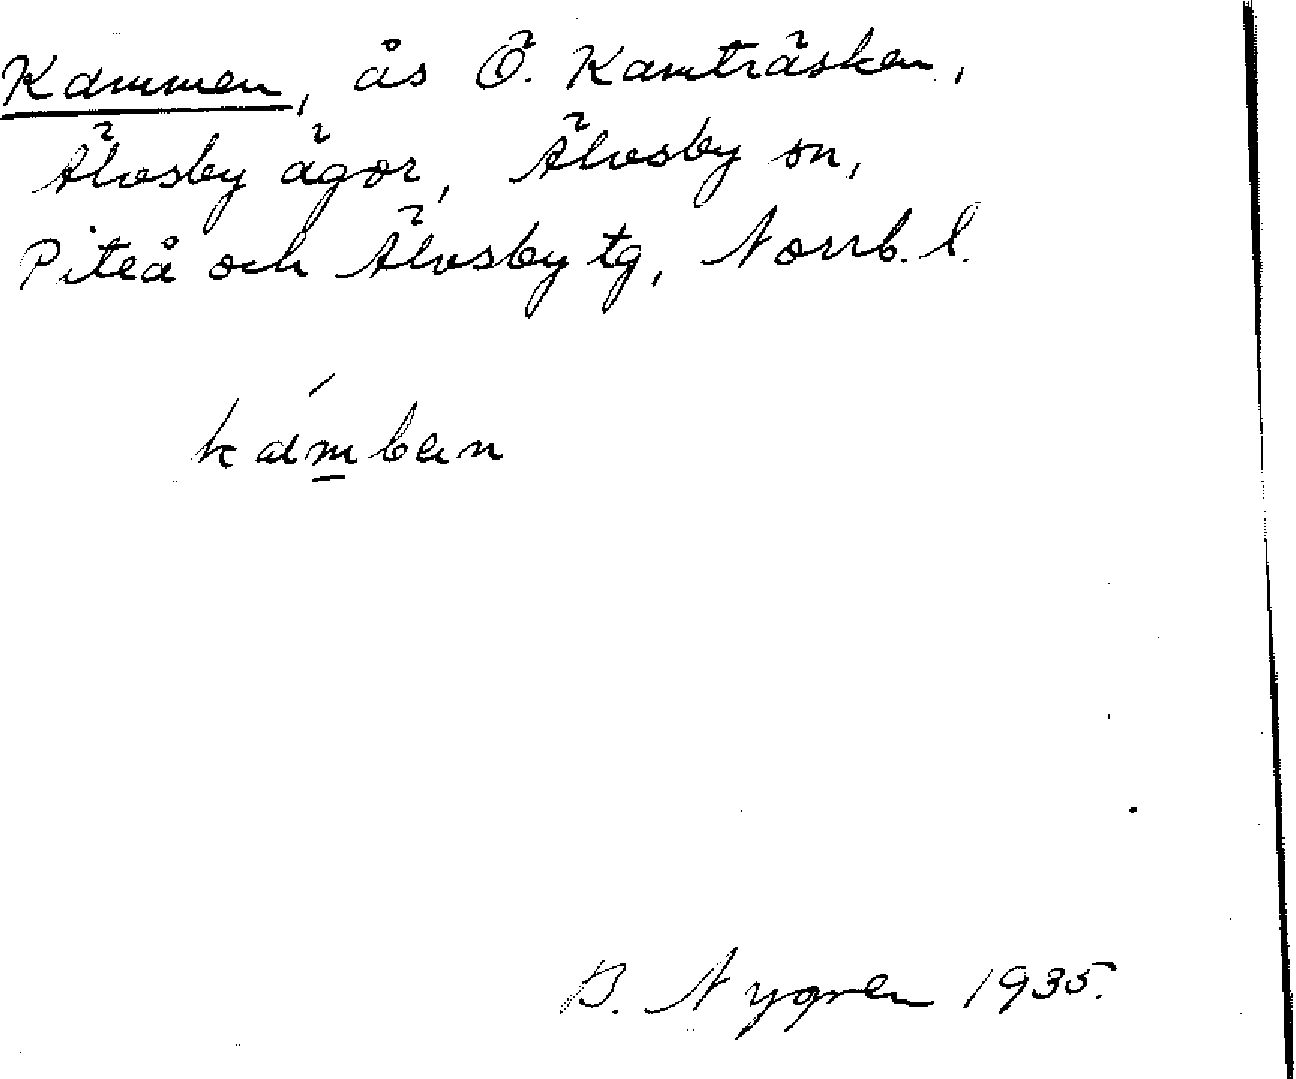 Kammen, ås Ö. Kamträsken,
Älvsby ägor, Älvsby sn,
Piteå och Älvsby tg, Norrb. l.
kámben
B. Nygren 1935.